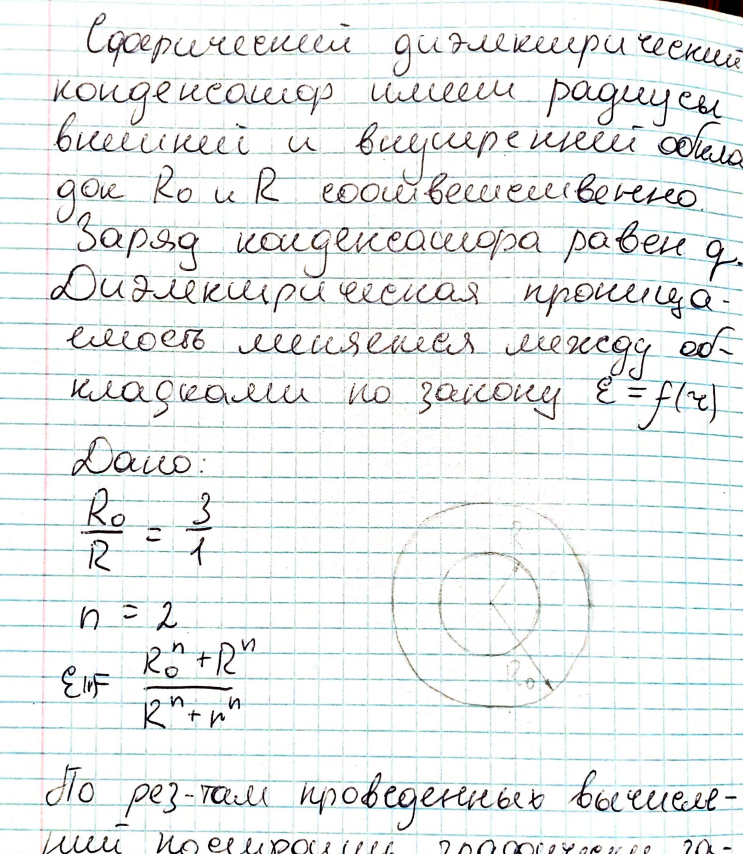 Сферический диэлектрический
конденсатор имеет радиусы
внешней и внутренней обкла
док R₀ и R соответственно.
Заряд конденсатора равен q.
Диэлектрическая проница-
емость меняется между об-
кладками по закону ε = f(r)
Дано:
R₀/R = 3/1
n = 2
R
R₀
ε(r)= (R₀ⁿ + Rⁿ)/(Rⁿ + rⁿ)
По рез-там проведенных вычисле-
ний построить графически за-